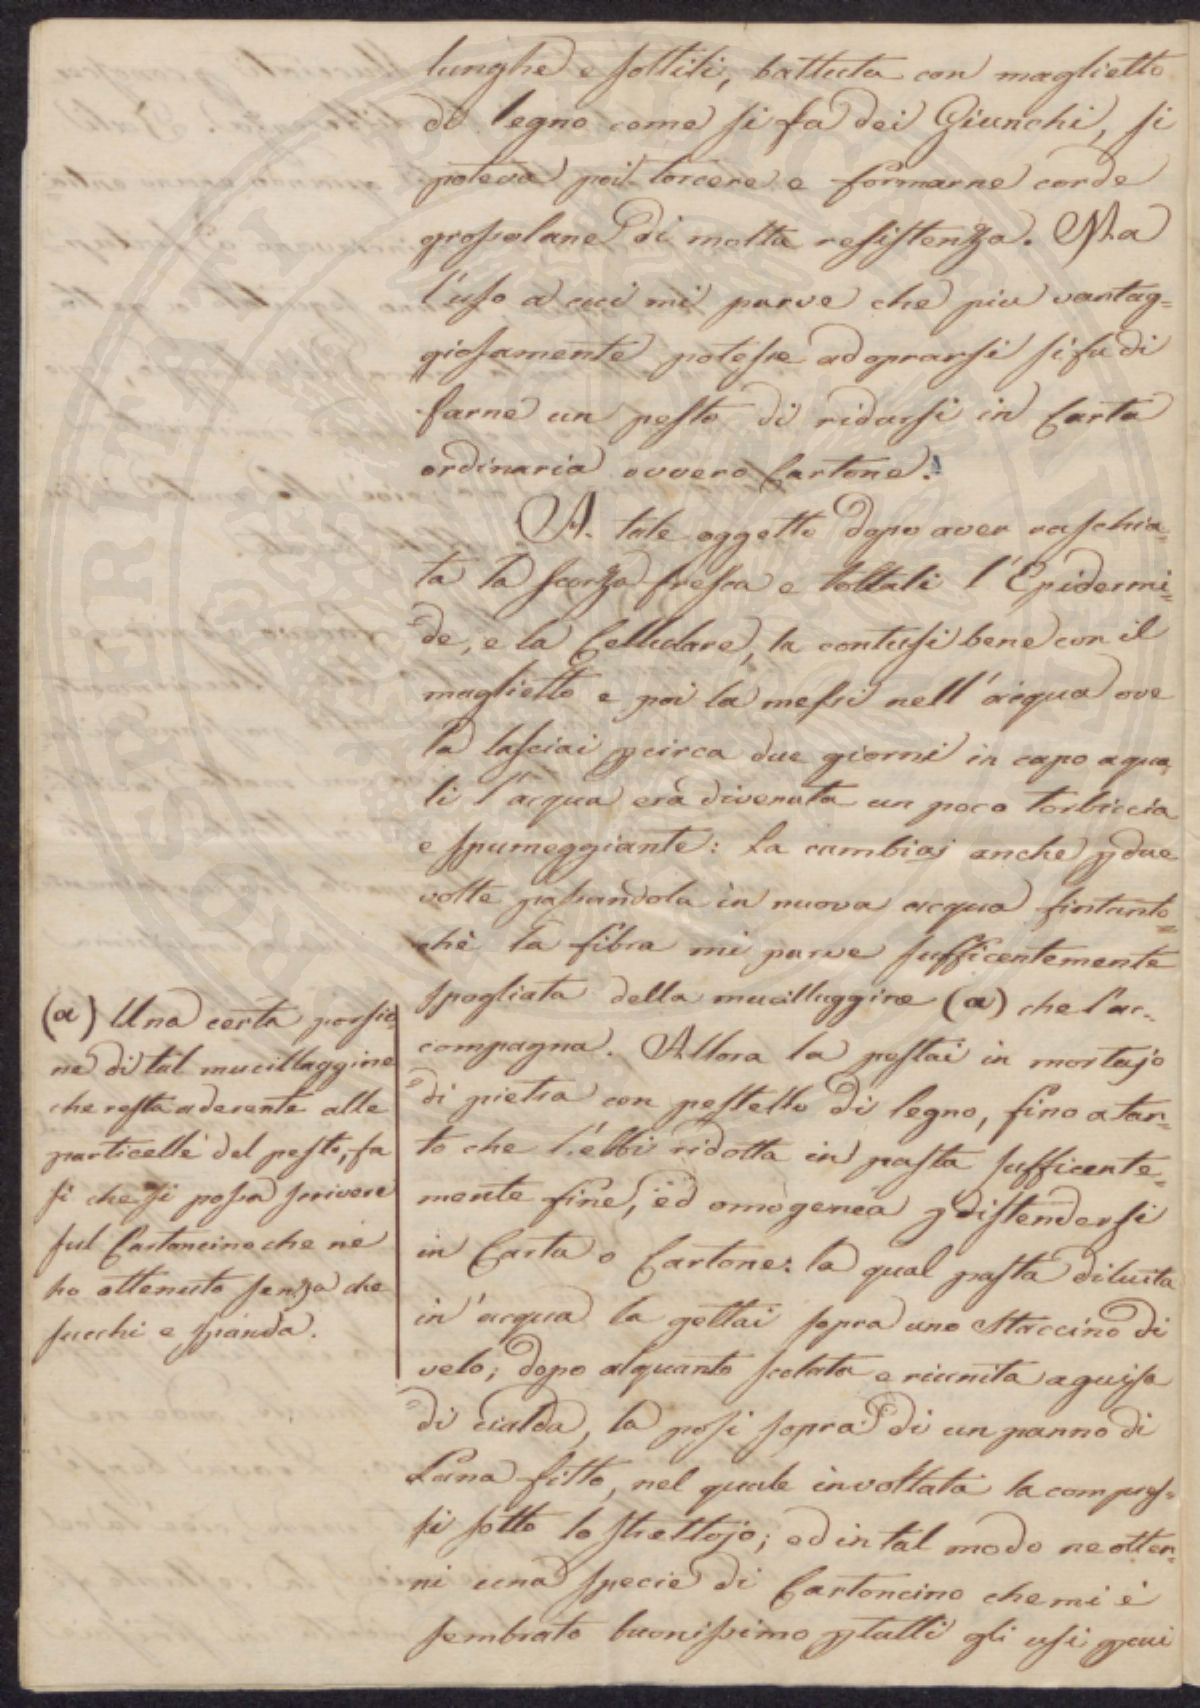 lunghe e sottili, battuta con maglietto
di legno come si fa dei Giunchi, si
poteva poi torcere e formarne corde
grossolane di molta resistenza. Ma
l'uso a cui mi parve che piu vantag=
giosamente potesse adoprarsi si fu di
farne un pesto di ridursi in Carta
ordinaria ovvero Cartone.
A tale oggetto dopo aver raschia=
ta la scorza fresca e toltali l'Epidermi=
de, e la Cellulare, la contusi bene con il
maglietto e poi la messi nell'acqua ove
la lasciai p circa due giorni in capo a qua
li l'acqua era divenuta un poco torbiccia
e spumeggiante: La cambiai anche p due
volte passandola in nuova acqua fintanto=
chè la fibra mi parve sufficentemente
spogliata della mucillaggine (a) che l'ac=
compagna. Allora la pestai in mortajo
di pietra con pestello di legno, fino a tan=
to che l'ebbi ridotta in pasta sufficente=
mente fine, ed omogenea p distendersi
in Carta o Cartone: la qual pasta diluita
in acqua la gettai sopra uno Staccino di
velo; dopo alquanto scolata e riunita a guisa
di cialda, la posi sopra di un panno di
Lana fitto, nel quale involtata la compres=
si sotto lo strettojo; ed in tal modo ne otten=
ni una specie di Cartoncino che mi è
sembrato buonissimo p tutti gli usi p cui
(a) Una certa porzio
ne di tal mucillaggine
che resta aderente alle
particelle del pesto, fa
si che si possa scrivere
sul Cartoncino che ne
ho ottenuto senza che
succhi e spanda.
PROSPERITATI PUBLICAE